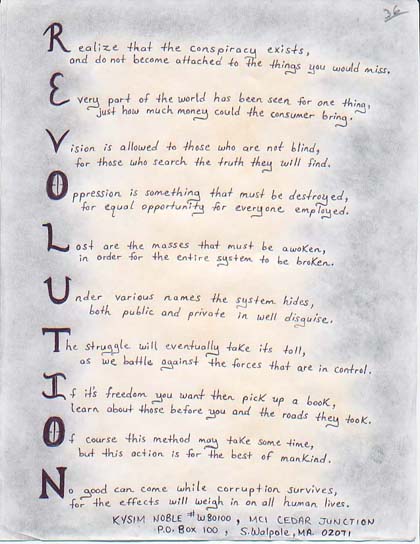 36
Realize that the conspiracy exists,
and do not become attached to the things you would miss.
Every part of the world has been seen for one thing,
just how much money could the consumer bring.
Vision is allowed to those who are not blind,
for those who search the truth they will find.
Oppression is something that must be destroyed,
for equal opportunity for everyone employed.
Lost are the masses that must be awoken,
in order for the entire system to be broken.
Under various names the system hides,
both public and private in well disguise.
The struggle will eventually take its toll,
as we battle against the forces that are in control.
If it's freedom you want then pick up a book,
learn about those before you and the roads they took.
Of course this method may take some time,
but this action is for the best of mankind.
No good can come while corruption survives,
for the effects will weigh in on all human lives.
KYSIM NOBLE #W80100, MCI CEDAR JUNCTION
P.O. Box 100, S. Walpole, MA. 02071